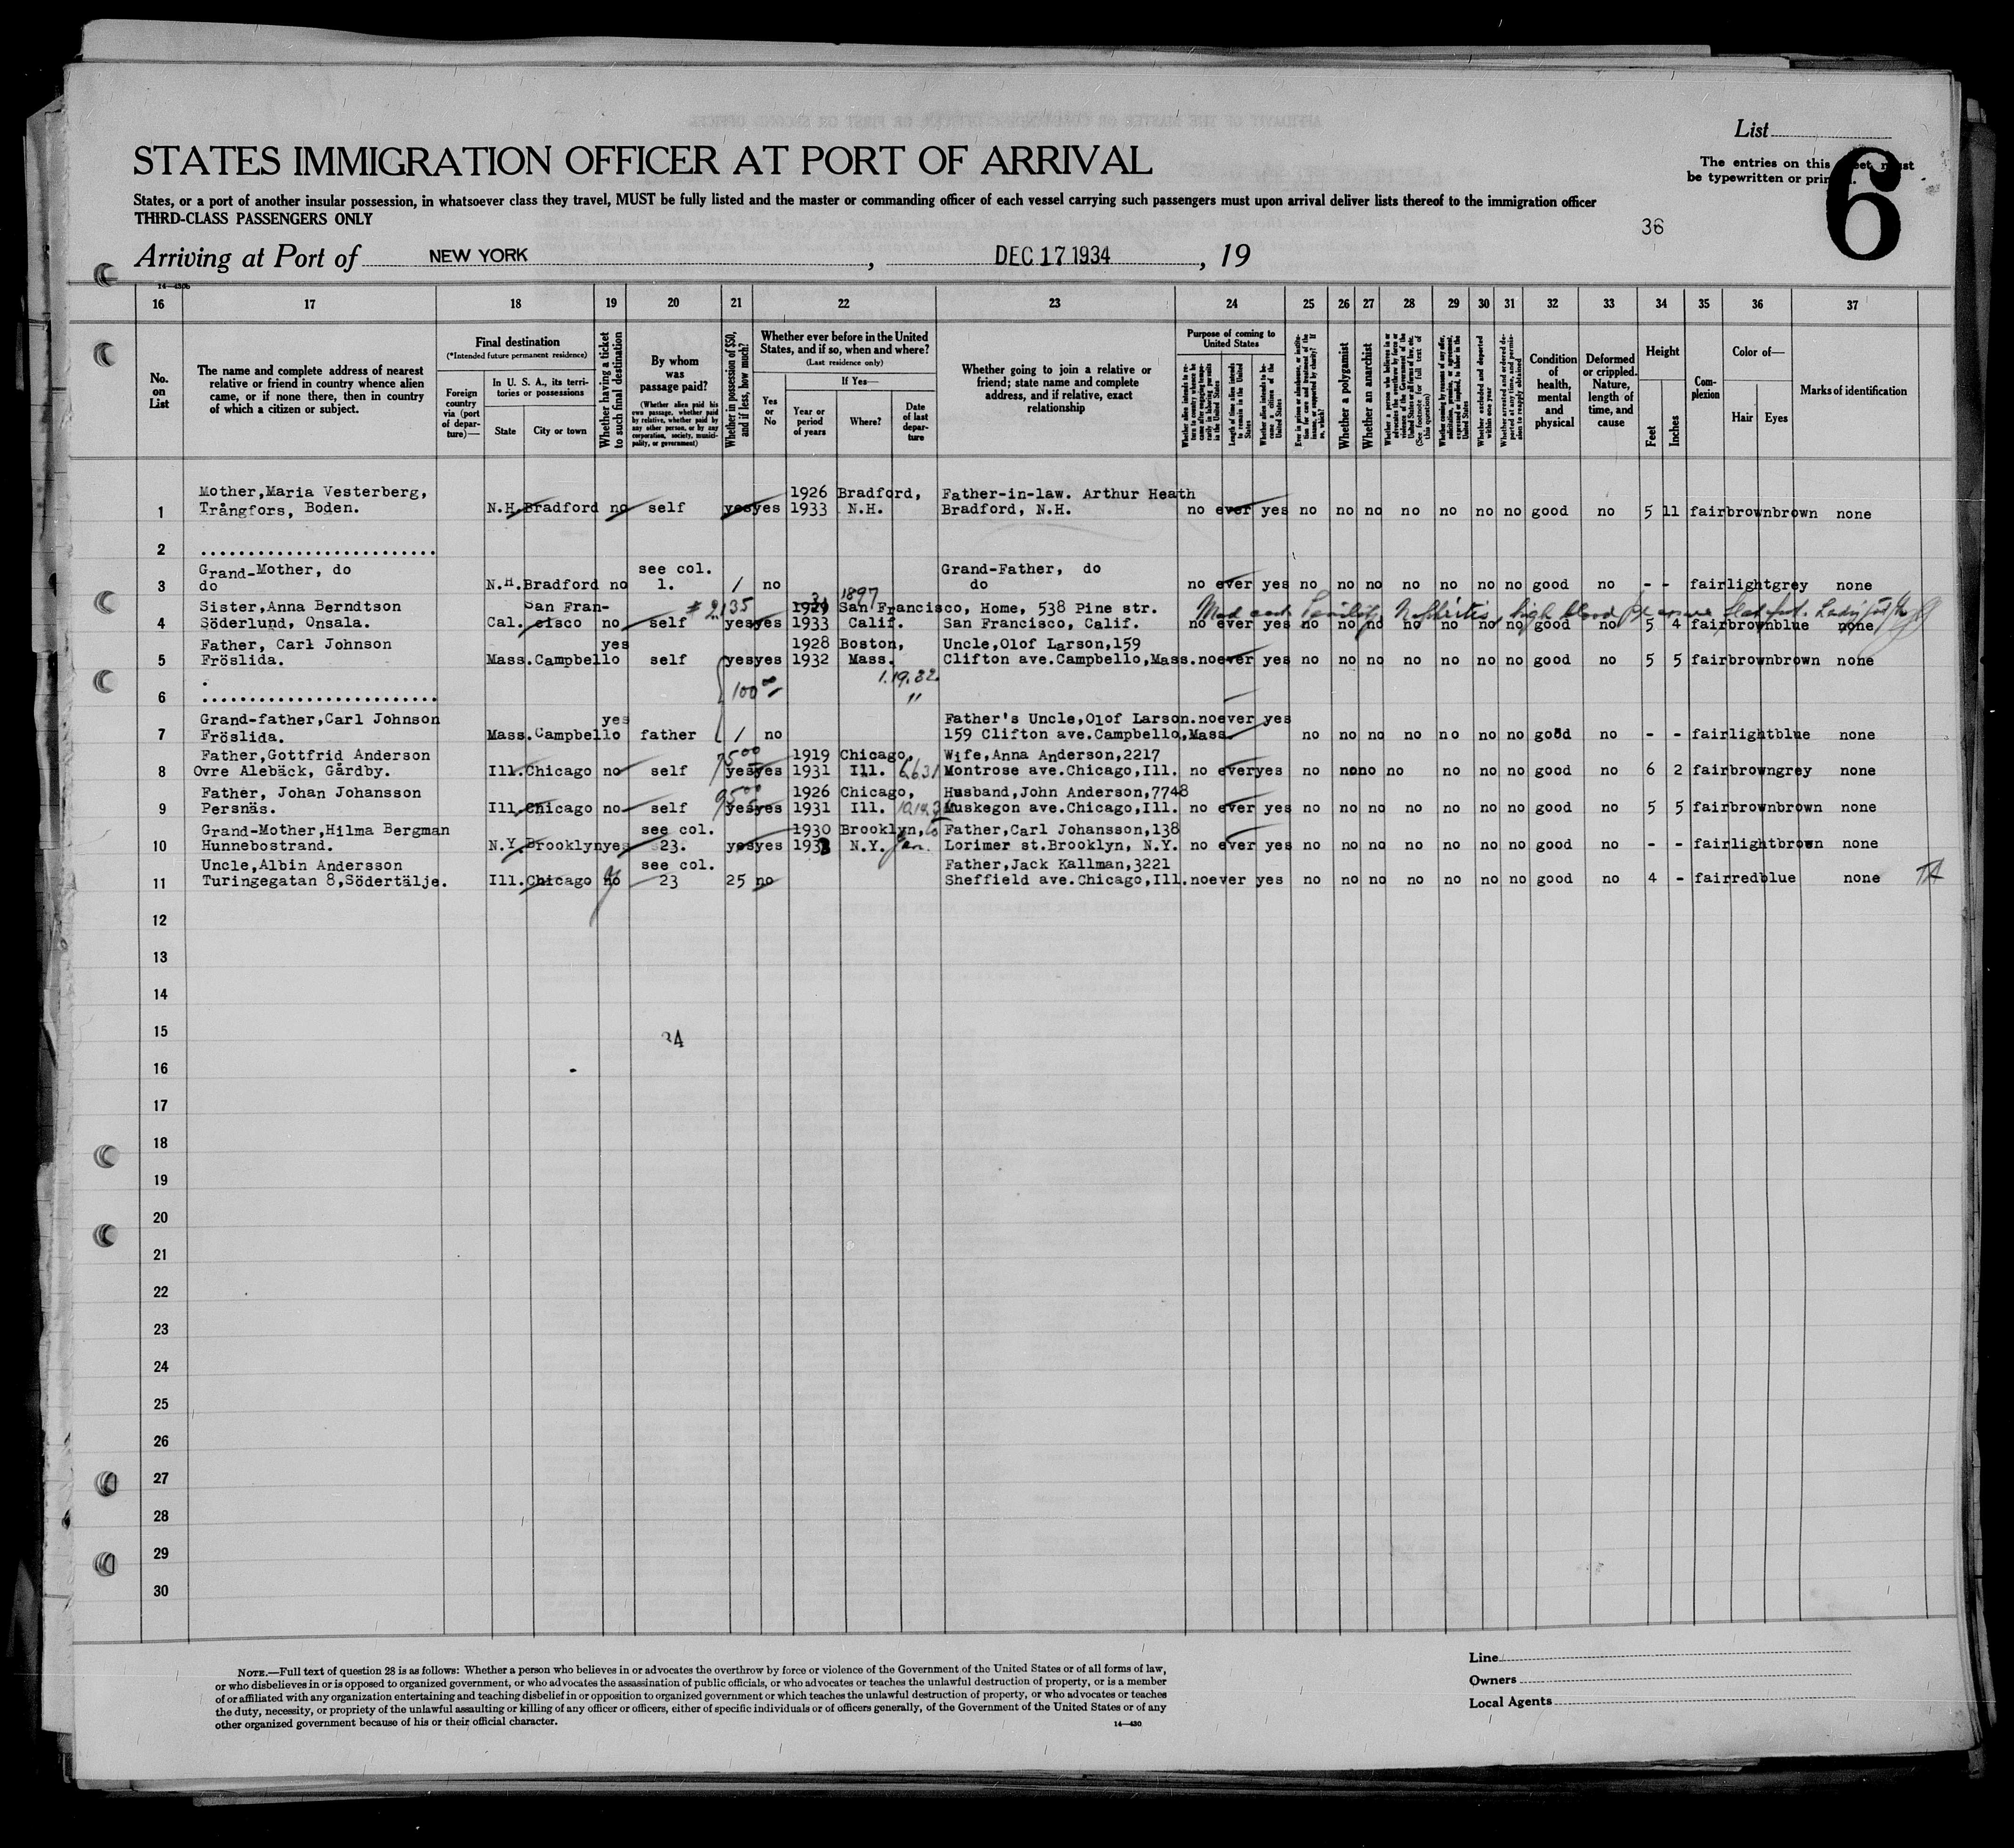 List
6
The entries on this sheet must
be typewritten or printed.
STATES IMMIGRATION OFFICER AT PORT OF ARRIVAL
States, or a port of another insular possession, in whatsoever class they travel, MUST be fully listed and the master or commanding officer of each vessel carrying such passengers must upon arrival deliver lists thereof to the immigration officer
THIRD-CLASS PASSENGERS ONLY
36
Arriving at Port of NEW YORK, DEC 17 1934, 19
16 17 18 19 20 21 22 23 24 25 26 27 28 29 30 31 32 33 34 35 36 37
No. on List
The name and complete address of nearest
relative or friend in country whence alien
came, or if none there, then in country
of which a citizen or subject.
Final destination
(*Intended future permanent residence)
Foreign country via (port of departure)—
In U. S. A., its territories or possessions
State
City or town
Whether having a ticket to such final destination
By whom was passage paid?
(Whether alien paid his own passage, whether paid by relative, whether paid by any other person, or by any corporation, society, municipality, or government)
Whether in possession of $50, and if less, how much?
Whether ever before in the United States, and if so, when and where?
(Last residence only)
Yes or No
If Yes—
Year or period of years
Where?
Date of last departure
Whether going to join a relative or
friend; state name and complete
address, and if relative, exact
relationship
Purpose of coming to United States
Length of time alien intends to remain in the United States
Whether alien intends to become a citizen of the United States
Whether a polygamist
Whether an anarchist
Whether excluded and deported within one year
Condition of health, mental and physical
Deformed or crippled. Nature, length of time, and cause
Height
Feet
Inches
Complexion
Color of—
Hair
Eyes
Marks of identification
Mother,Maria Vesterberg, 1926 Bradford, Father-in-law. Arthur Heath
1 Trångfors, Boden. N.H. Bradford no self yes yes 1933 N.H. Bradford, N.H. no ever yes no no no no no no no good no 5 11 fair brown brown none
2
Grand-Mother, do see col. Grand-Father, do
3 do N.H. Bradford no 1. / no do no ever yes no no no no no no no good no - - fair light grey none
Sister,Anna Berndtson San Fran- 2135 1929 1897 San Francisco, Home, 538 Pine str.
4 Söderlund, Onsala. Cal. cisco no self yes yes 1933 Calif. San Francisco, Calif. no ever yes no no no no no no no good no 5 4 fair brown blue none
Nephritis, high blood pressure
Father, Carl Johnson yes 1928 Boston, Uncle,Olof Larson,159
5 Fröslida. Mass. Campbello self yes yes 1932 Mass. Clifton ave.Campbello,Mass. no ever yes no no no no no no no good no 5 5 fair brown brown none
1.19.32.
6 100 00 "
Grand-father,Carl Johnson yes Father's Uncle,Olof Larson. no ever yes
7 Fröslida. Mass. Campbello father / no 159 Clifton ave.Campbello,Mass. no no no no no no no good no - - fair light blue none
Father,Gottfrid Anderson 75 00 1919 Chicago, Wife,Anna Anderson,2217
8 Ovre Alebäck, Gårdby. Ill. Chicago no self yes yes 1931 Ill. 6.6.31 Montrose ave.Chicago,Ill. no ever yes no no no no no no no good no 6 2 fair brown grey none
Father, Johan Johansson 95 00 1926 Chicago, Husband,John Anderson,7748
9 Persnäs. Ill. Chicago no self yes yes 1931 Ill. Muskegon ave.Chicago,Ill. no ever yes no no no no no no no good no 5 5 fair brown brown none
Grand-Mother,Hilma Bergman see col. 1930 Brooklyn, Father,Carl Johansson,138
10 Hunnebostrand. N.Y. Brooklyn yes 23. yes yes 1933 N.Y. Jan. Lorimer st.Brooklyn, N.Y. no ever yes no no no no no no no good no - - fair light brown none
Uncle,Albin Andersson see col. Father,Jack Kallman,3221
11 Turingegatan 8,Södertälje. Ill. Chicago no 23 25 no Sheffield ave.Chicago,Ill. no ever yes no no no no no no no good no 4 - fair red blue none
12
13
14
15
34
16
17
18
19
20
21
22
23
24
25
26
27
28
29
30
NOTE.—Full text of question 28 is as follows: Whether a person who believes in or advocates the overthrow by force or violence of the Government of the United States or of all forms of law,
or who disbelieves in or is opposed to organized government, or who advocates the assassination of public officials, or who advocates or teaches the unlawful destruction of property, or is a member
of or affiliated with any organization entertaining and teaching disbelief in or opposition to organized government or which teaches the unlawful destruction of property, or who advocates or teaches
the duty, necessity, or propriety of the unlawful assaulting or killing of any officer or officers, either of specific individuals or of officers generally, of the Government of the United States or of any
other organized government because of his or their official character.
14—430
Line
Owners
Local Agents